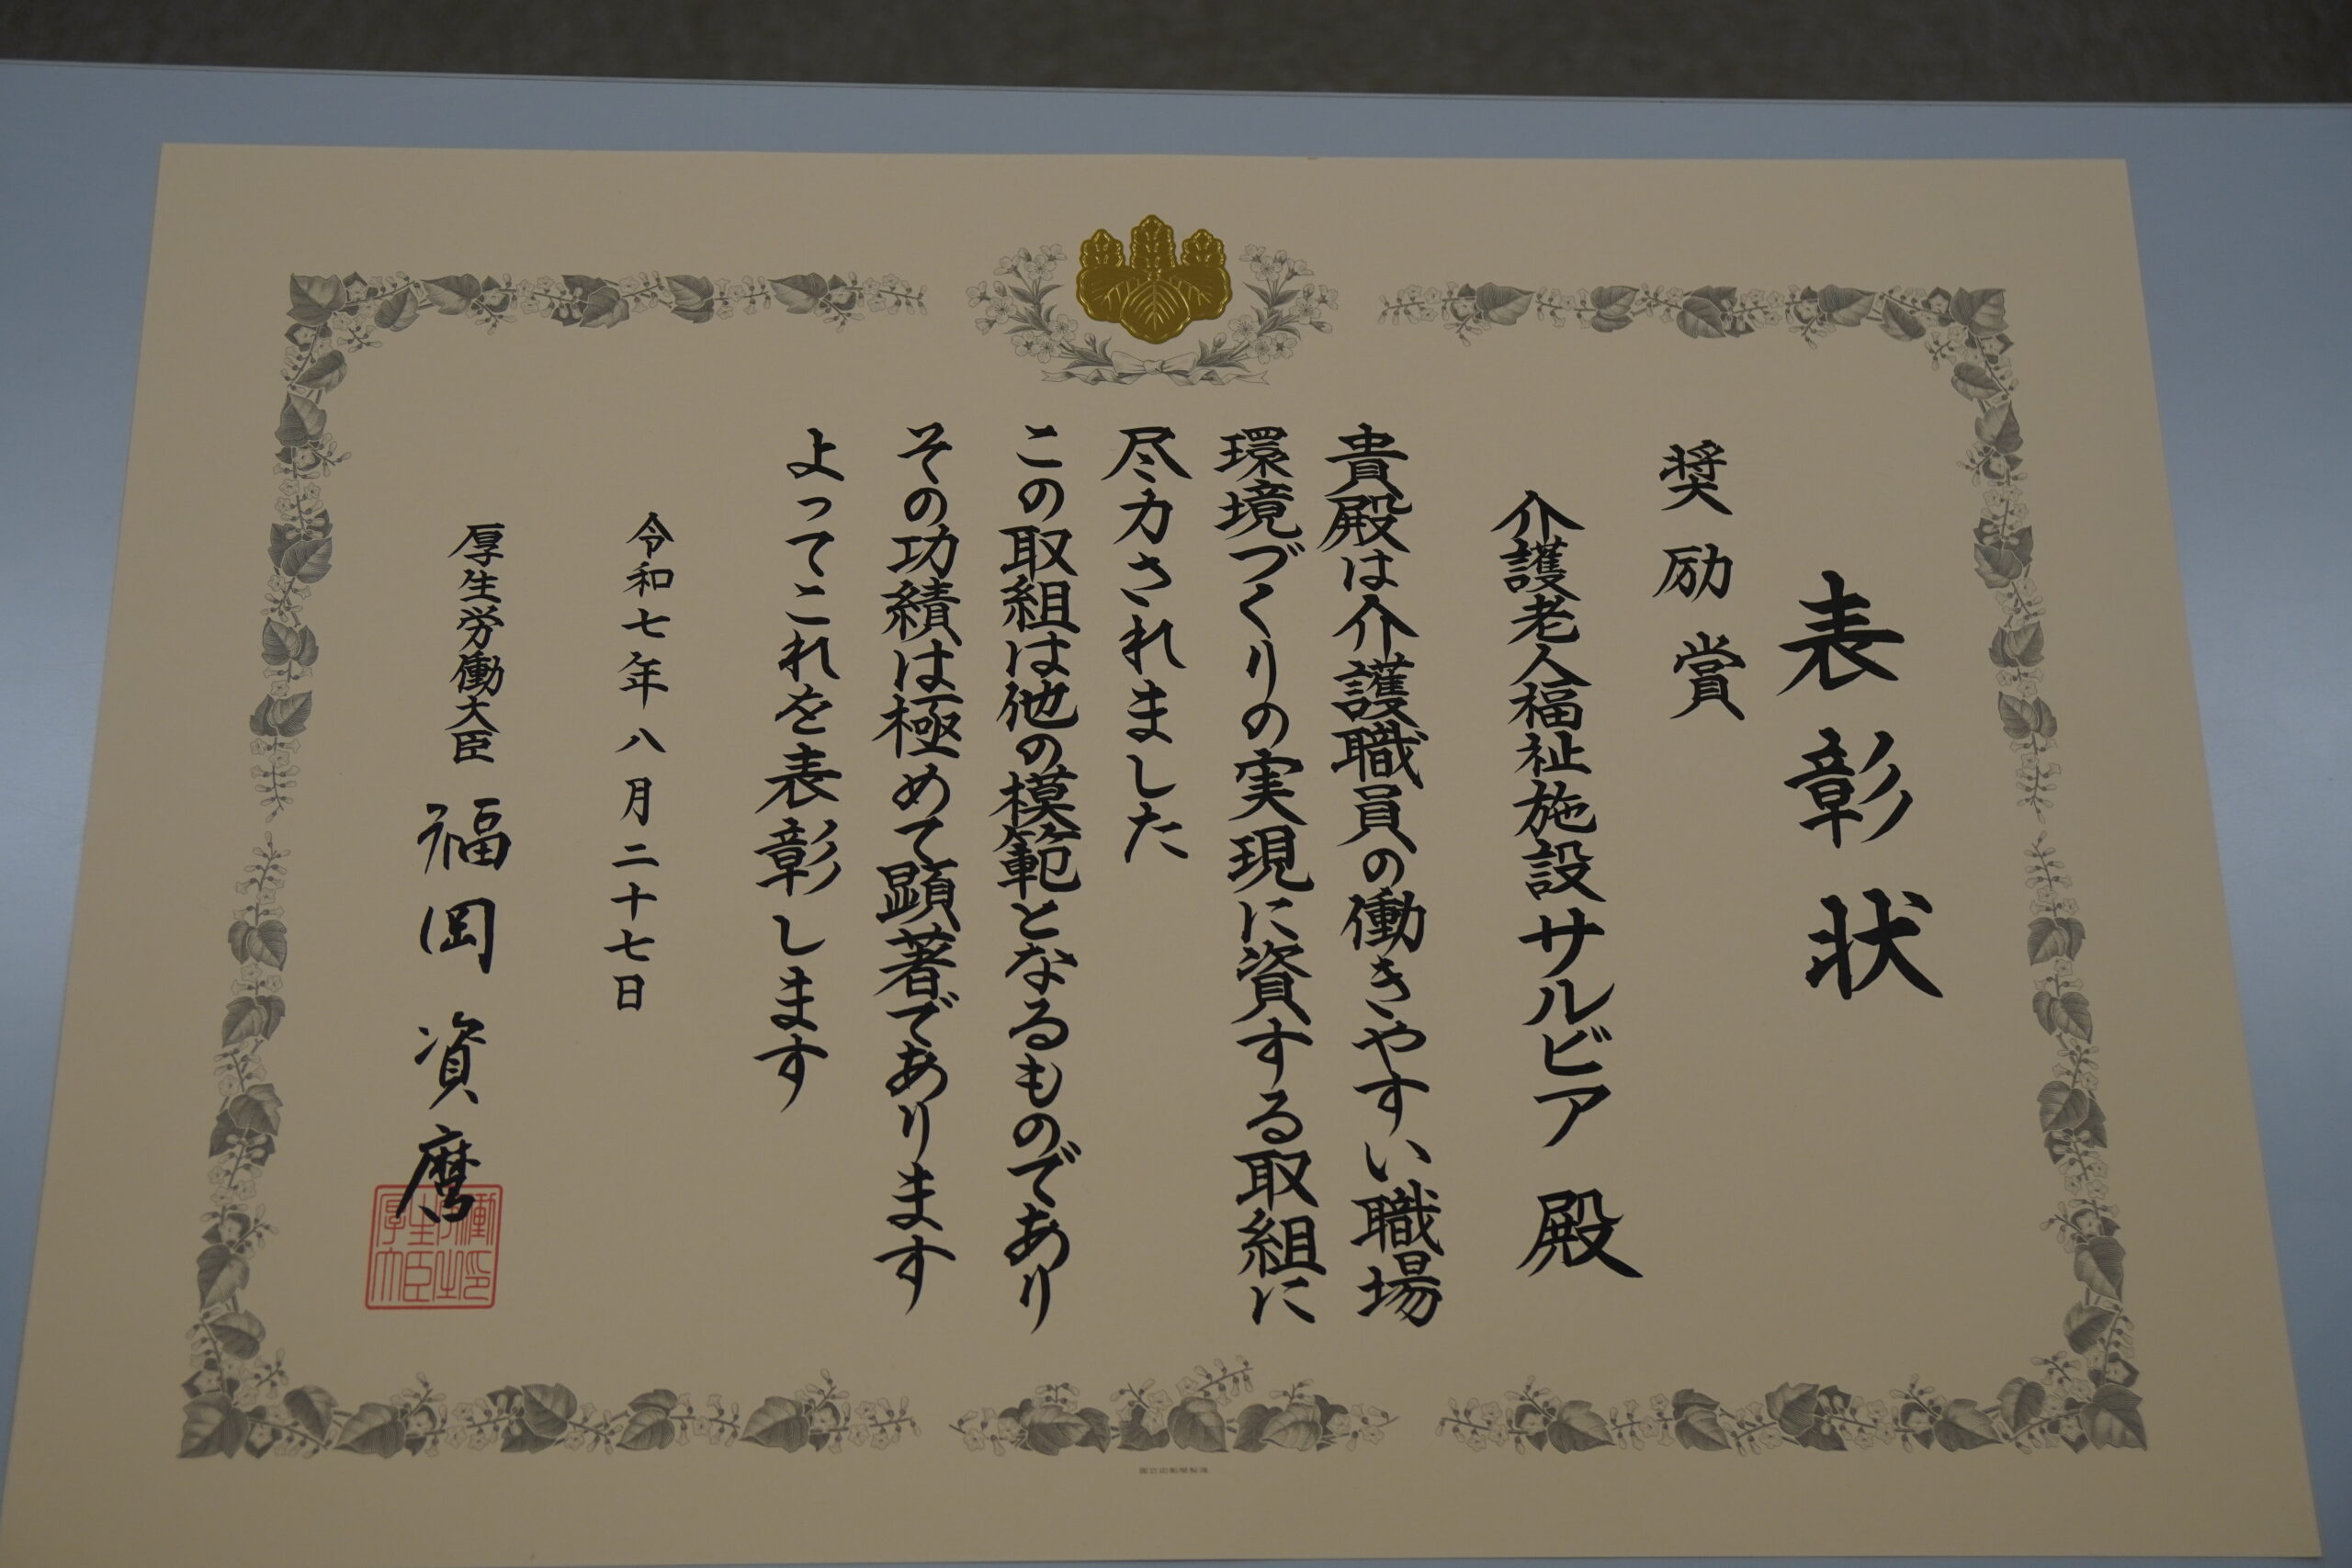 表彰状
奨励賞
介護老人福祉施設サルビア 殿
貴殿は介護職員の働きやすい職場
環境づくりの実現に資する取組に
尽力されました
この取組は他の模範となるものであり
その功績は極めて顕著であります
よってこれを表彰します
令和七年八月二十七日
厚生労働大臣 福岡資麿